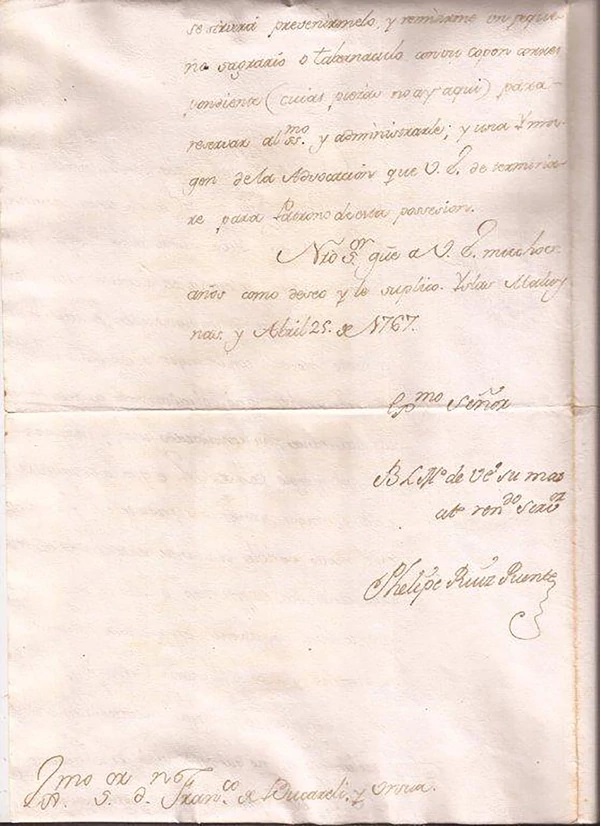 se servirá prevenirmelo, y remitirme un peque-
ño sagrario o tabernaculo con su copon corres-
pondiente (cuias piezas no ay aqui) para
reservar al SS.mo y administrarle; y una Yma-
gen de la Advocación que V. E. determina-
re para Patrono de esta possesion.
Nro S.or gũe a V. E. muchos
años como deseo y le suplico. Yslas Malvi-
nas, y Abril 25. de 1767.
Exmo Señor
B L M.o de V E.a su mas
at.o ren.do Serv.or
Phelipe Ruiz Puente
Exmo S.or D. Fran.co de Bucareli, y Ursua.